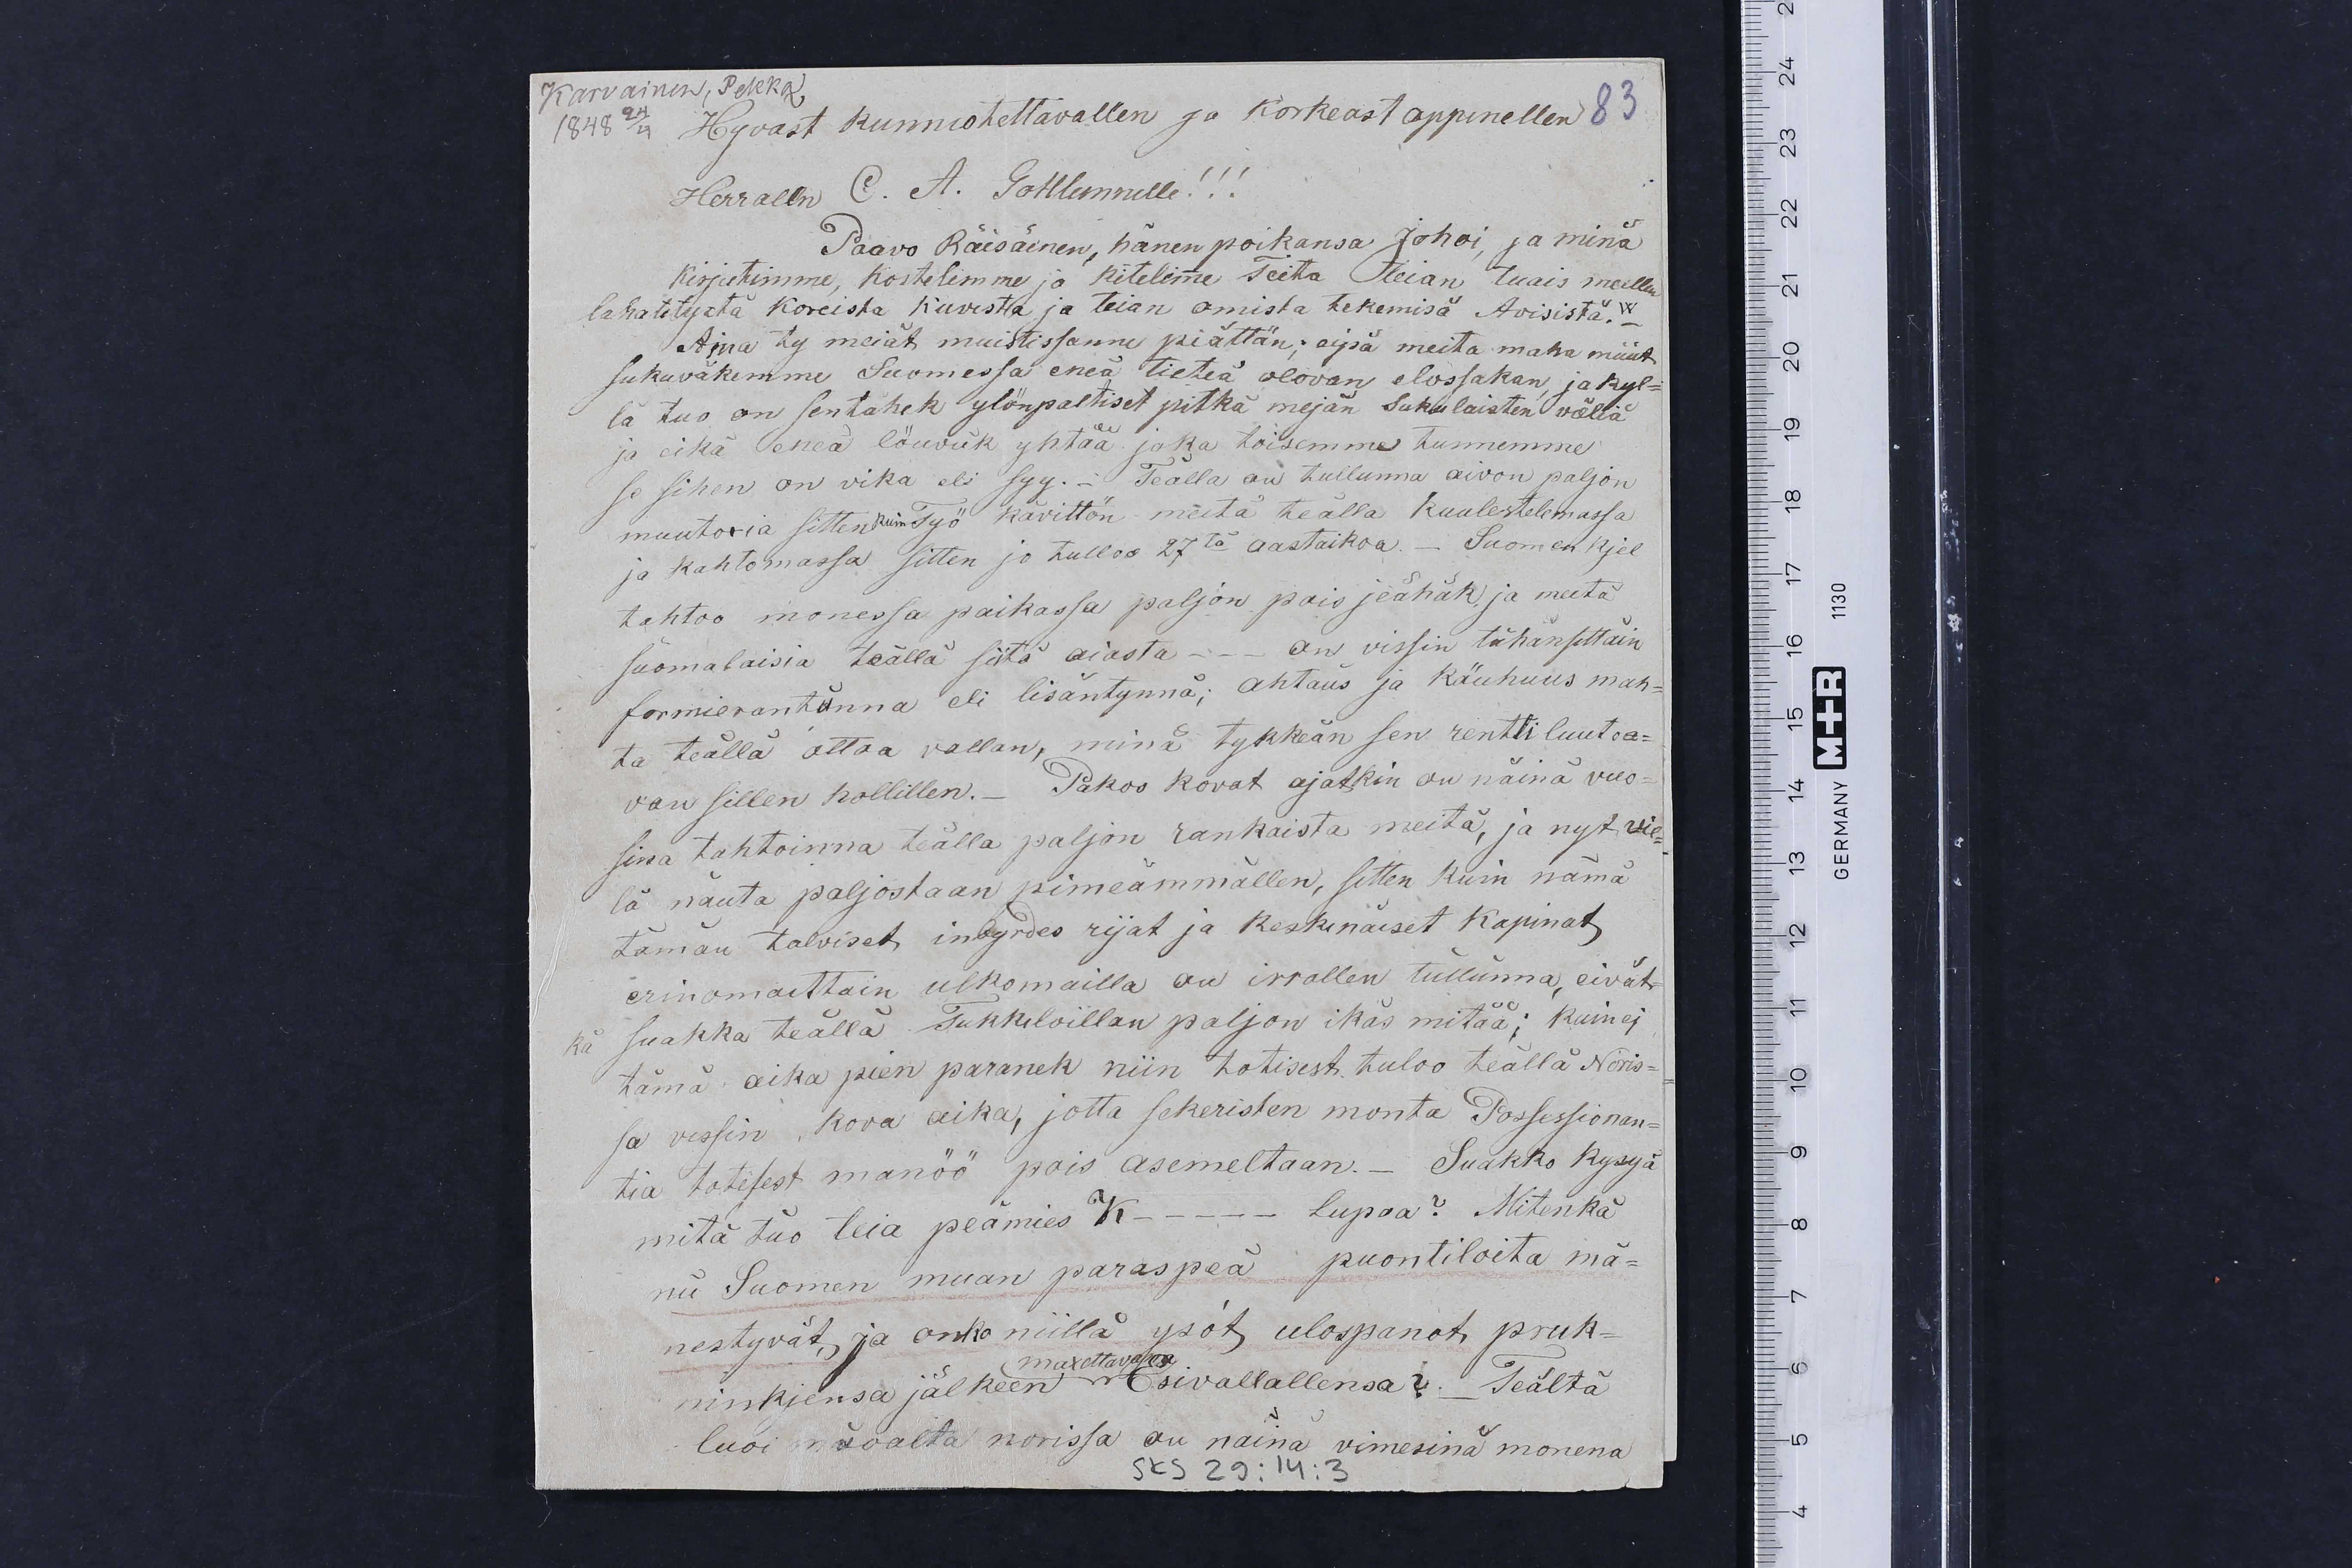 Karvainen, Pekka
1848 24/4
83
Hyvast kunniotettavallen ja korkeast appinellen
Herralln C. A. Gottlunnulle!!!
Paavo Räisäinen, hänen poikansa Johoi, ja minä
kirjutimme, kostelimme ja kitelim̄e Teita teian tuais meillen
lahatetyätä koreista kuvista ja teian omista tekemisä Avisistä.
Aina ty meiät muistissanne piättän; eipä meita maha müüt
sukuväkemme Suomessa eneä tieteä olovan elossakan, ja kyl=
lä tuo on sentähek ylönpaltiset pitkä mejän sukulaisten väliä
ja eikä eneä löuvük yhtää joka toisemme tunnemme
se sihen on vika eli syy. – Teälla au tullunna aivon paljon
muutoria sitten kuin Työ kävittön meitä teälla kuulestelemassa
ja kahtomassa sitten jo tulloo 27tä aastaikoa. – Suomen kjel
tahtoo monessa paikassa paljon pois jeähäk, ja meitä
suomalaisia teällä siitä aiasta --- on vissin tähänsittäin
formierantunna eli lisäntynnä; ahtaus ja käuhuus mah=
ta teällä ottaa vallan, minä tykkeän sen rentti luutoa=
van sillen hollillen. – Pakoo kovat ajatkin au näinä vuo=
sina tahtoinna teälla paljon rankaista meitä, ja nyt vie=
lä näuta paljostaan pimeämmällen, sitten kuin nämä
tämän talviset inbyrdes rijat ja keskinäiset kapinat
erinomaittain ulkomailla au irrallen tullunna, eivät
kä suakka teällä Tukkiloillan paljon ikäs mitää; kuin ej
tämä aika pien paranek niin totisest tuloo teällä Noris=
sa vissin kova aika, jotta sekeristen monta Possessionan=
tia totisest manöö pois asemeltaan. – Suakko kysyä
mitä tuo teia peämies K----- lupaa? Mitenkä
nii Suomen muan paraspeä puontiloita mä=
nestyvät, ja onko niillä ysöt ulospanot pruk=
ninkjensa jälkeen maxettavana Esivallallensa?. – Teältä
luoi norissa au näinä vimesinä monena
SKS 29:14:3
24
23
22
21
20
19
18
17
16
15
14
13
12
11
10
9
8
7
6
5
4
GERMANY M+R 1130